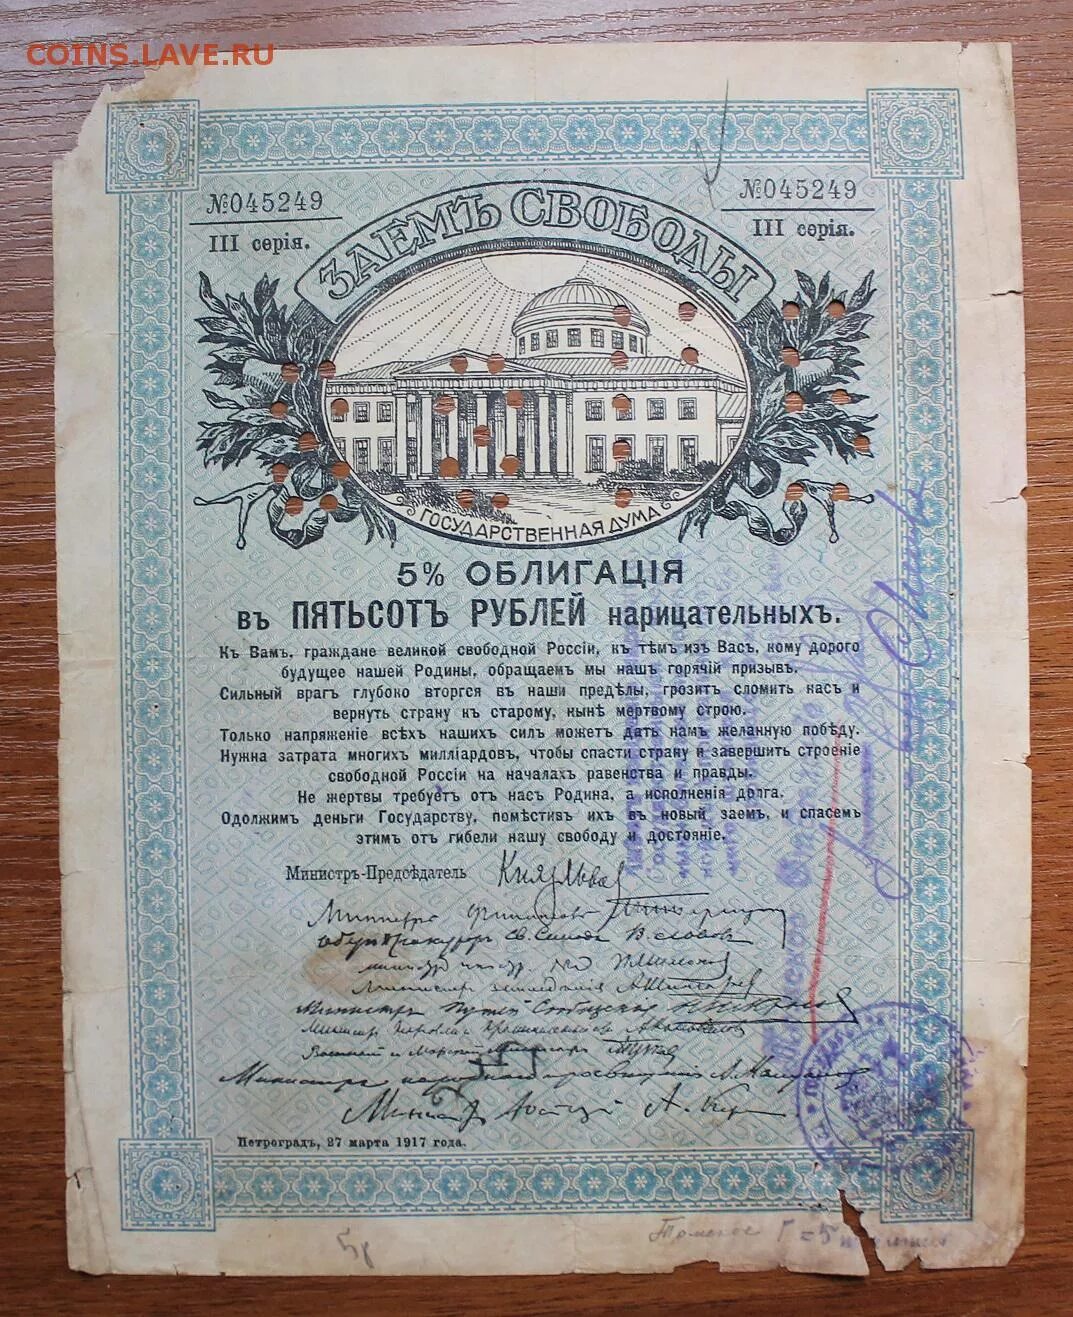 COINS.LAVE.RU
№045249
№045249
III серія.
III серія.
ЗАЕМЪ СВОБОДЫ
ГОСУДАРСТВЕННАЯ ДУМА
5% ОБЛИГАЦІЯ
въ ПЯТЬСОТЪ РУБЛЕЙ нарицательныхъ.
Къ Вамъ, граждане великой свободной Россіи, къ тѣмъ изъ Васъ, кому дорого
будущее нашей Родины, обращаемъ мы нашъ горячій призывъ.
Сильный врагъ глубоко вторгся въ наши предѣлы, грозитъ сломить насъ и
вернуть страну къ старому, нынѣ мертвому строю.
Только напряженіе всѣхъ нашихъ силъ можетъ дать намъ желанную побѣду.
Нужна затрата многихъ милліардовъ, чтобы спасти страну и завершить строеніе
свободной Россіи на началахъ равенства и правды.
Не жертвы требуетъ отъ насъ Родина, а исполненія долга.
Одолжимъ деньги Государству, помѣстивъ ихъ въ новый заемъ, и спасемъ
этимъ отъ гибели нашу свободу и достояніе.
Министръ-Предсѣдатель Князь Львов
Министръ финансовъ
Оберъ Прокуроръ Св. Синода В. Львовъ
Министръ земледѣлія А. Шингарев
Министръ Путей Сообщенія Н. Некрасов
Министр Торговли и Промышленности А. Коновалов
Военный и Морской Министръ
Министръ народнаго просвѣщенія А. Мануйлов
Министр Юстиціи А. Керенскій
Петроградъ, 27 марта 1917 года.
5р
Томское